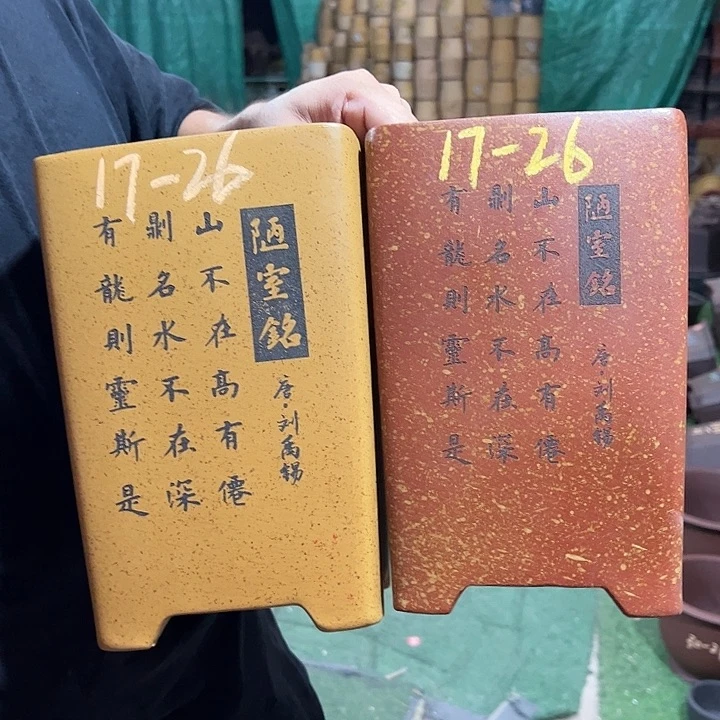 17-26
陋室銘
唐·刘禹锡
山不在髙有僊
則名水不在深
有龍則靈斯是
17-26
陋室銘
唐·刘禹锡
山不在髙有僊
則名水不在深
有龍則靈斯是